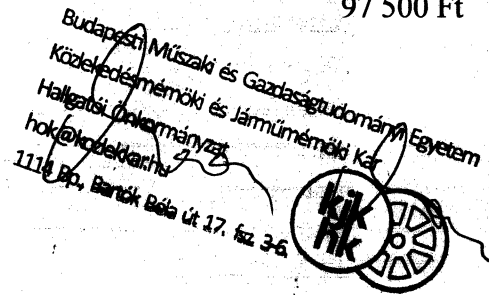 97 500 Ft
Budapesti Műszaki és Gazdaságtudományi Egyetem
Közlekedésmérnöki és Járműmérnöki Kar
Hallgatói Önkormányzat
hok@kozlekkar.hu
1114 Bp., Bartók Béla út 17. fsz. 3-6.
kjk
hk